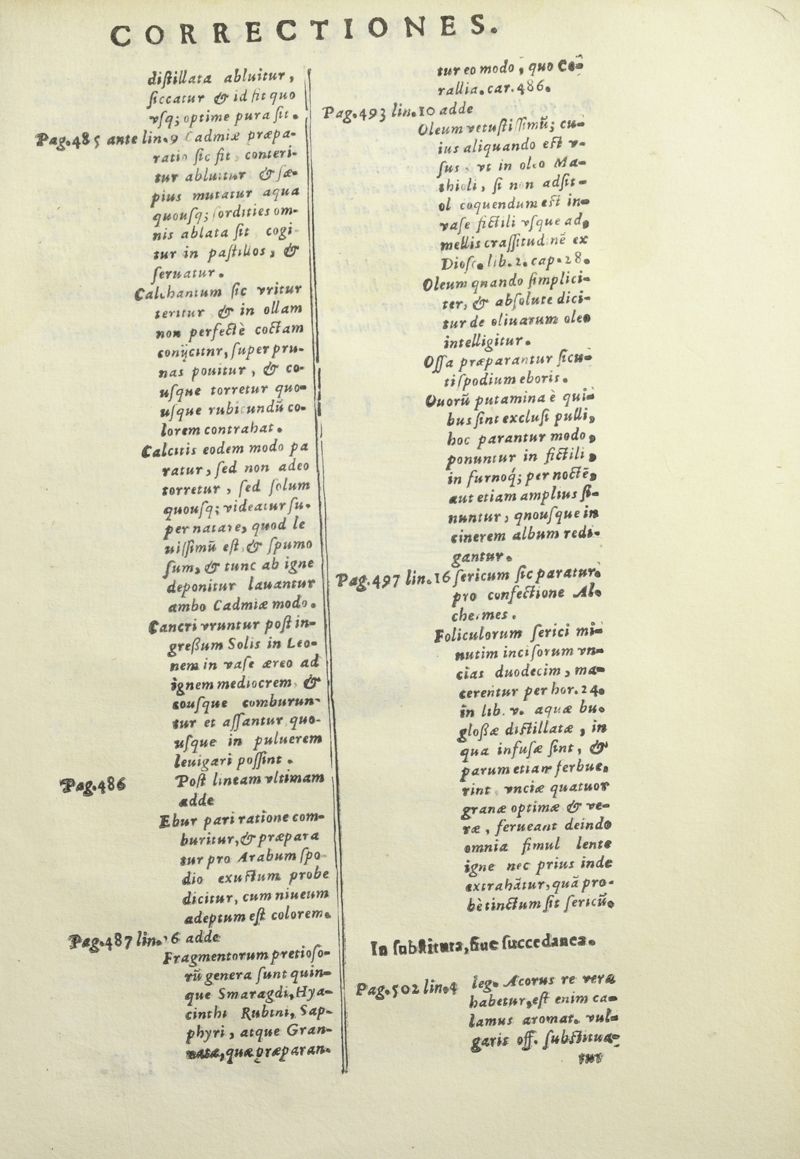 CORRECTIONES.
diſtillata abluitur,
ſiccatur & id fit quo
vſq; optime pura ſit.
Pag.485 ante lin.9 Cadmiæ præpa-
ratio ſic fit conteri-
tur abluitur & ſæ-
pius mutatur aqua
quouſq; ſordities om-
nis ablata ſit cogi
tur in paſtillos, &
ſeruatur.
Calchantum ſic vritur
teritur & in ollam
non perfectè coctam
conijcitur, ſuper pru-
nas ponitur, & eo-
uſque torretur quo-
uſque rubicundũ co-
lorem contrahat.
Calcitis eodem modo pa
ratur, ſed non adeo
torretur, ſed ſolum
quouſq; videatur ſu-
per natare, quod le
uiſſimũ eſt, & ſpumo
ſum, & tunc ab igne
deponitur lauantur
ambo Cadmiæ modo.
Cancri vruntur poſt in-
greßum Solis in Leo-
nem in vaſe æreo ad
ignem mediocrem, &
eouſque comburun-
tur et aſſantur quo-
uſque in puluerem
leuigari poſſint.
Pag.486 Poſt lineam vltimam
adde
Ebur pari ratione com-
buritur, & præpara
tur pro Arabum ſpo
dio exuſtum probe
dicitur, cum niueum
adeptum eſt colorem.
Pag.487 lin.16 adde
Fragmentorum pretioſo-
rũ genera ſunt quin-
que Smaragdi, Hya-
cinthi Rubini, Sap-
phyri, atque Gran-
nata, quæ præparan-
tur eo modo, quo Co-
rallia. car. 486.
Pag.493 lin.10 adde
Oleum vetuſtiſſimũ; cu-
ius aliquando eſt v-
ſus, vt in oleo Ma-
thioli, ſi non adſit-
ol coquendum eſt in-
vaſe fictili vſque ad,
mellis craſſitudinē ex
Dioſc. lib. 2. cap. 28.
Oleum quando ſimplici-
ter, & abſolute dici-
tur de oliuarum oleo
intelligitur.
Oſſa præparantur ſicu-
ti ſpodium eboris.
Ouorũ putamina è qui-
bus ſint excluſi pulli,
hoc parantur modo,
ponuntur in fictili,
in furnoq; per noctē,
aut etiam amplius ſi-
nuntur, qnouſque in
cinerem album redi-
gantur.
Pag.497 lin.16 ſericum ſic paratur
pro confectione Al-
chermes.
Foliculorum ſerici mi-
nutim inciſorum vn-
cias duodecim, ma-
cerentur per hor. 24.
in lib. v. aquæ bu-
gloßæ diſtillatæ, in
qua infuſæ ſint, &
parum etiam ferbue,
rint vnciæ quatuor
granæ optimæ & ve-
ræ, ferueant deinde
omnia ſimul lente
igne nec prius inde
extrahãtur, quã pro-
bè tinctum ſit ſericũ.
In ſubſtituta, ſiue ſuccedanea.
Pag.502 lin.4 leg. Acorus re vera
habetur, eſt enim ca-
lamus aromat. vul-
garis off. ſubſtitua-
tur